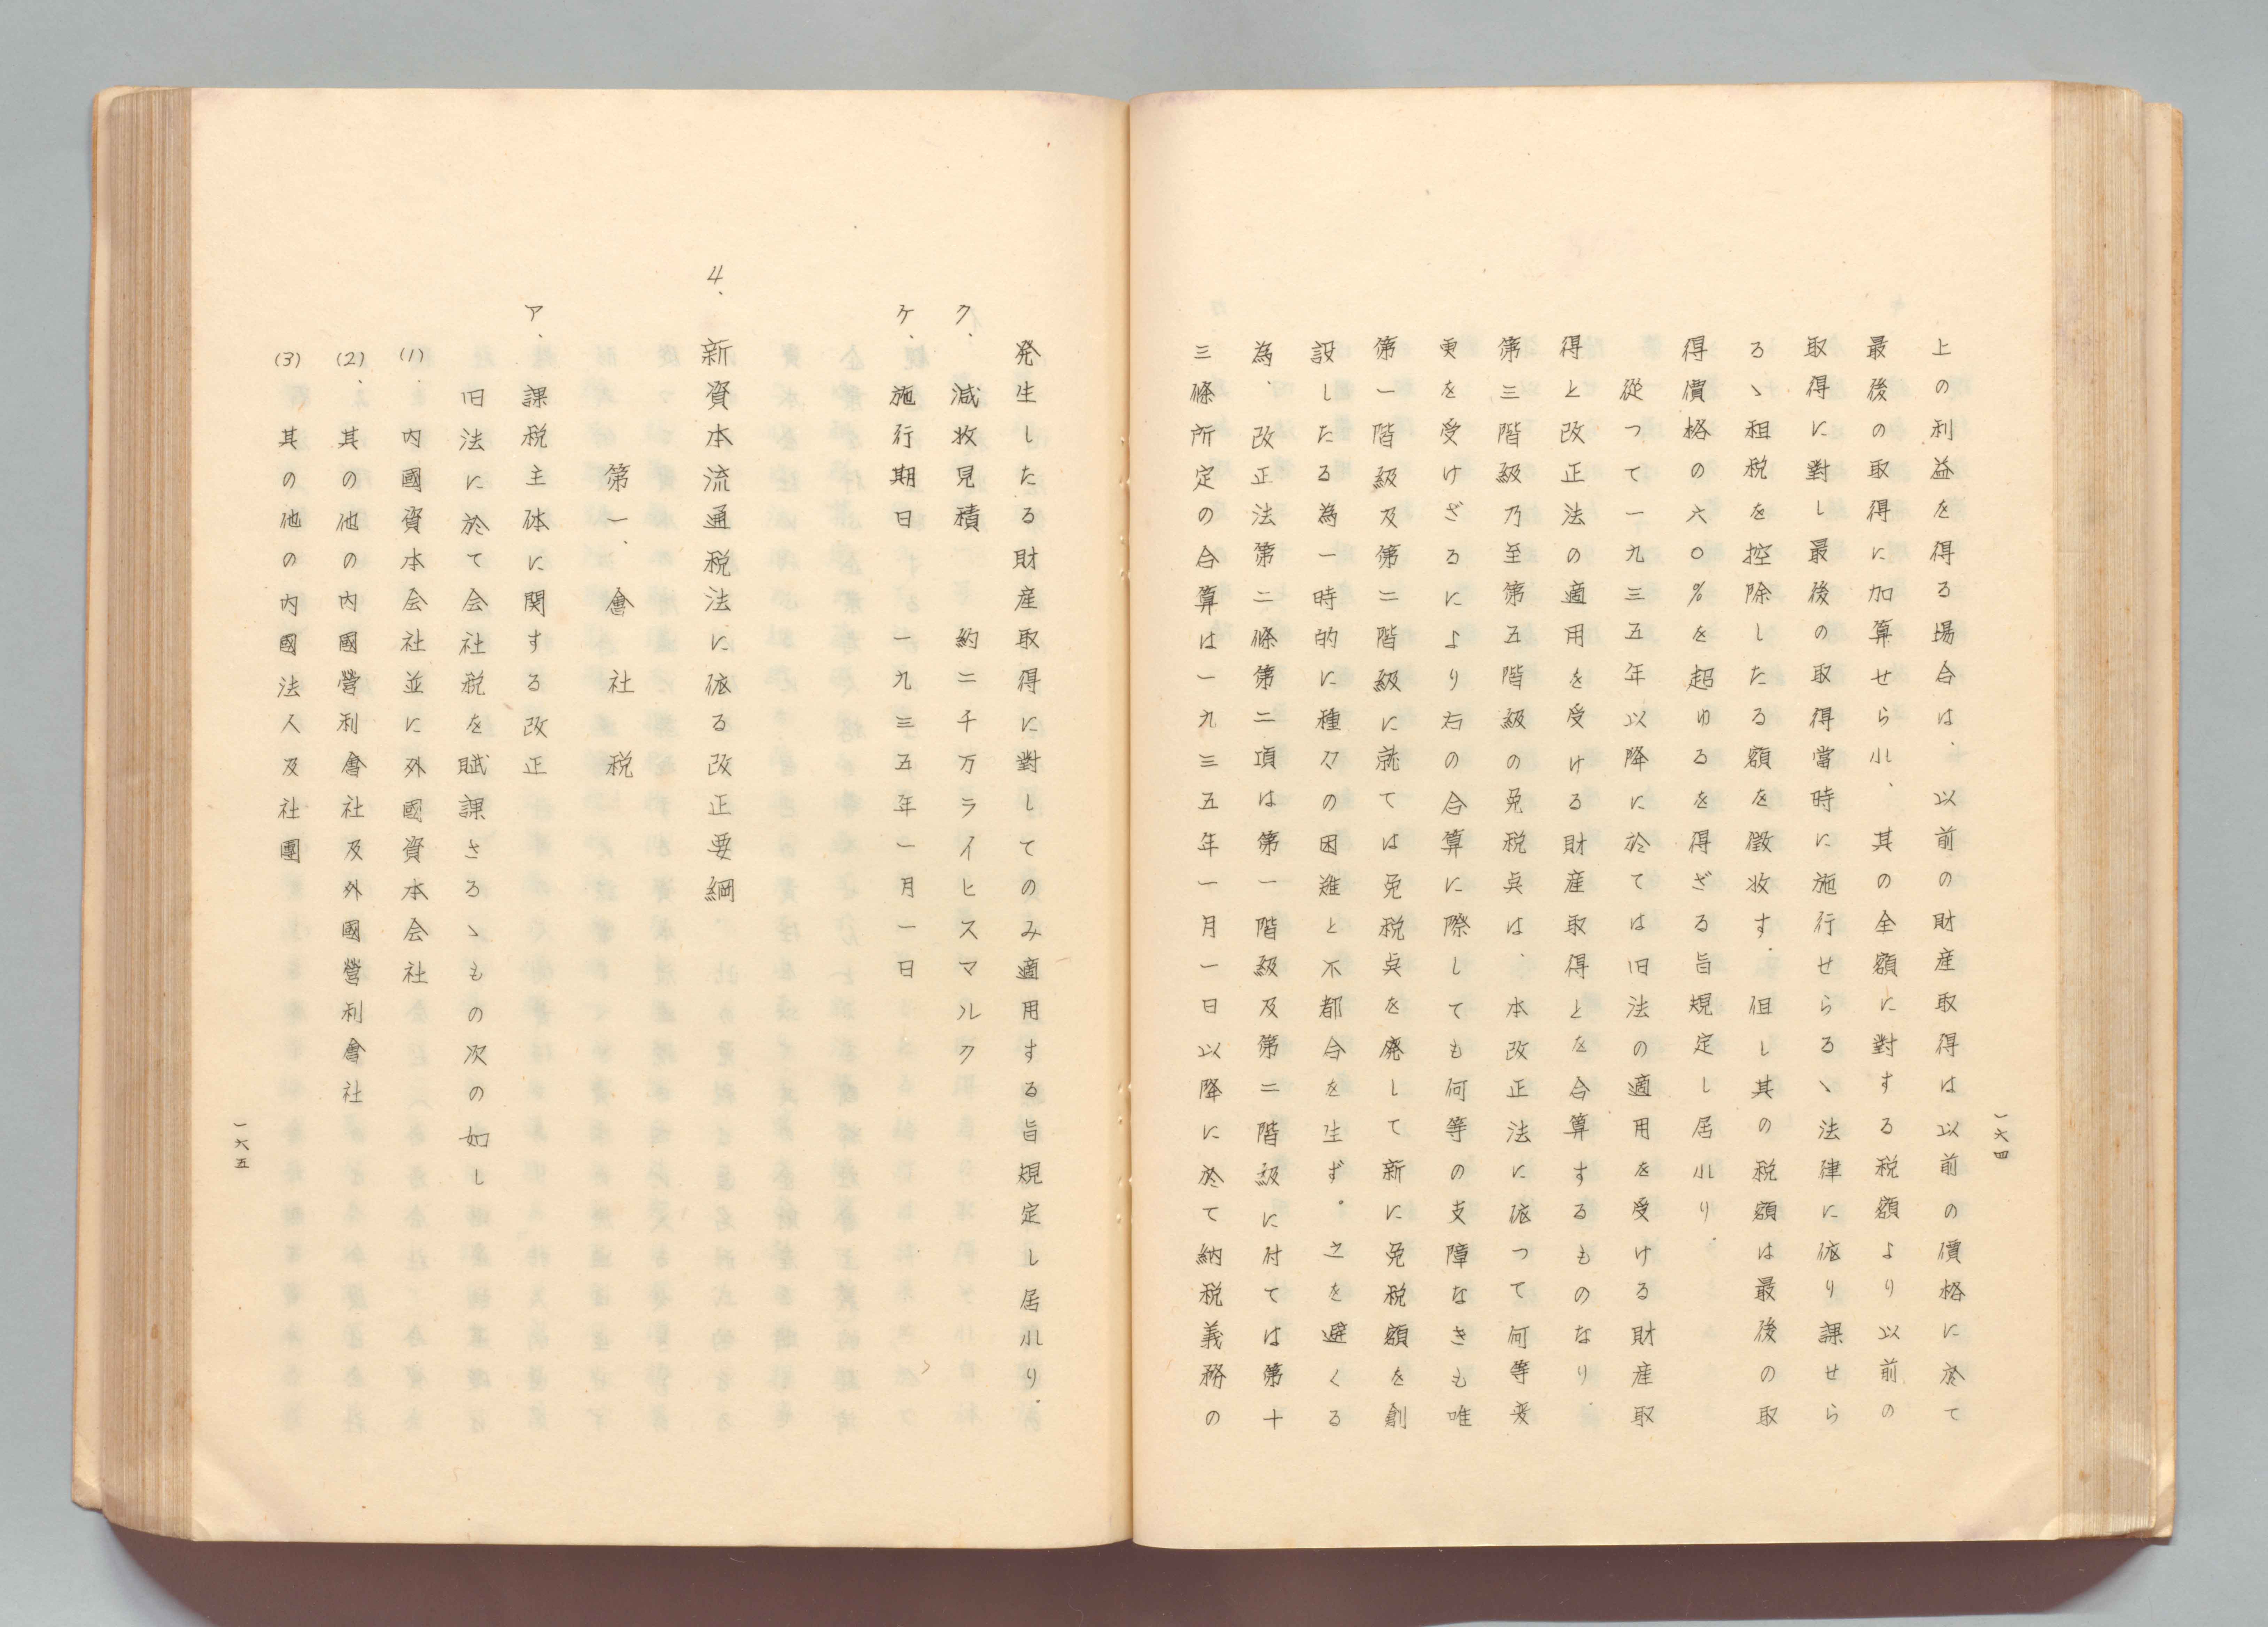 上の利益を得る場合は、以前の財産取得は以前の價格に於て
最後の取得に加算せられ、其の全額に對する税額より以前の
取得に對し最後の取得當時に施行せらるゝ法律に依り課せら
るゝ租税を控除したる額を徴收す。但し其の税額は最後の取
得價格の六〇％を超ゆるを得ざる旨規定し居れり。
從つて一九三五年以降に於ては旧法の適用を受ける財産取
得と改正法の適用を受ける財産取得とを合算するものなり。
第三階級乃至第五階級の免税点は、本改正法に依つて何等変
更を受けざるにより右の合算に際しても何等の支障なきも唯
第一階級及第二階級に就ては免税点を廃して新に免税額を創
設したる為一時的に種々の困難と不都合を生ず。之を避くる
為、改正法第二條第二項は第一階級及第二階級に付ては第十
三條所定の合算は一九三五年一月一日以降に於て納税義務の
一六四
発生したる財産取得に對してのみ適用する旨規定し居れり。
ク、減收見積　約二千万ライヒスマルク
ケ、施行期日　一九三五年一月一日
4、新資本流通税法に依る改正要綱
第一、會社税
ア、課税主体に関する改正
旧法に於て会社税を賦課さるゝもの次の如し
(1)、内國資本会社並に外國資本会社
(2)、其の他の内國營利會社及外國營利會社
(3)其の他の内國法人及社團
一六五